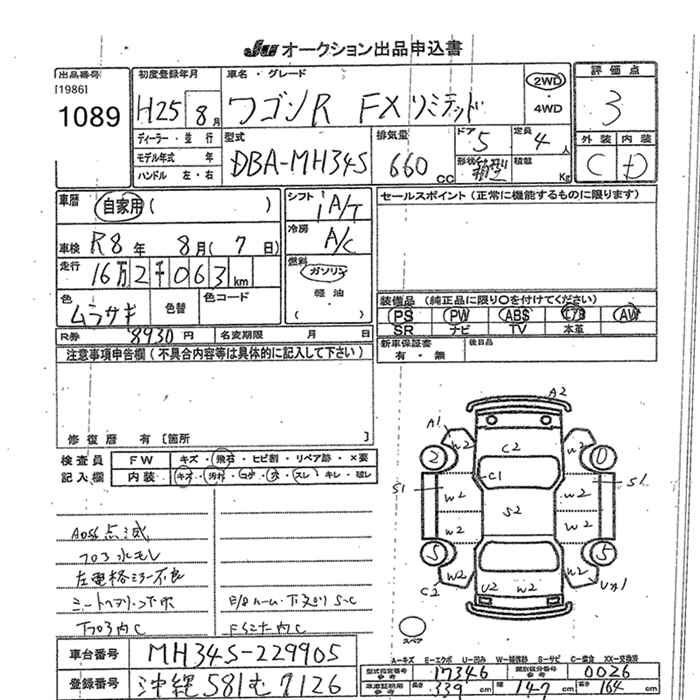 JU オークション出品申込書
出品番号
[1986]
1089
初度登録年月
H25 8月
車名・グレード
ワゴンR FXリミテッド
2WD
・
4WD
評価点
3
外装 内装
C D
ディーラー・並行
モデル年式 年
ハンドル 左・右
型式
DBA-MH34S
排気量
660 CC
ドア
5
定員
4人
形状
箱型
積載
Kg
車歴
自家用 ( )
シフト
IA/T
冷房
A/C
セールスポイント (正常に機能するものに限ります)
車検 R8年 8月 (7日)
走行
16万2千063km
燃料
ガソリン
軽油
( )
色
ムラサキ
色替
色コード
装備品 (純正品に限り○を付けてください)
PS PW ABS エアB AW
SR ナビ TV 本革
R券 8930円
名変期限 月 日
新車保証書
有・無
後日品
注意事項申告欄 (不具合内容等は具体的に記入して下さい)
修復歴 有 [箇所 ]
検査員
記入欄
FW キズ・飛石・ヒビ割・リペア跡・×要
内装 キズ・汚れ・コゲ・穴・スレ・キレ・破レ
点滅
フロア水モレ
左電格ミラー不良
MH34S-229905
車台番号
登録番号
沖縄 581 む 7126
A2
A1
W2
C2
W2
2
0
C1
S1
W2
W2
S1
S2
W2
W2
5
5
W2
U2
W2
W2
C2
スペア
A-キズ E-エクボ U-凹み W-補修跡 S-サビ C-腐食 XX-交換済
型式指定番号
17346
類別区分番号
0026
339 cm
147 cm
164 cm